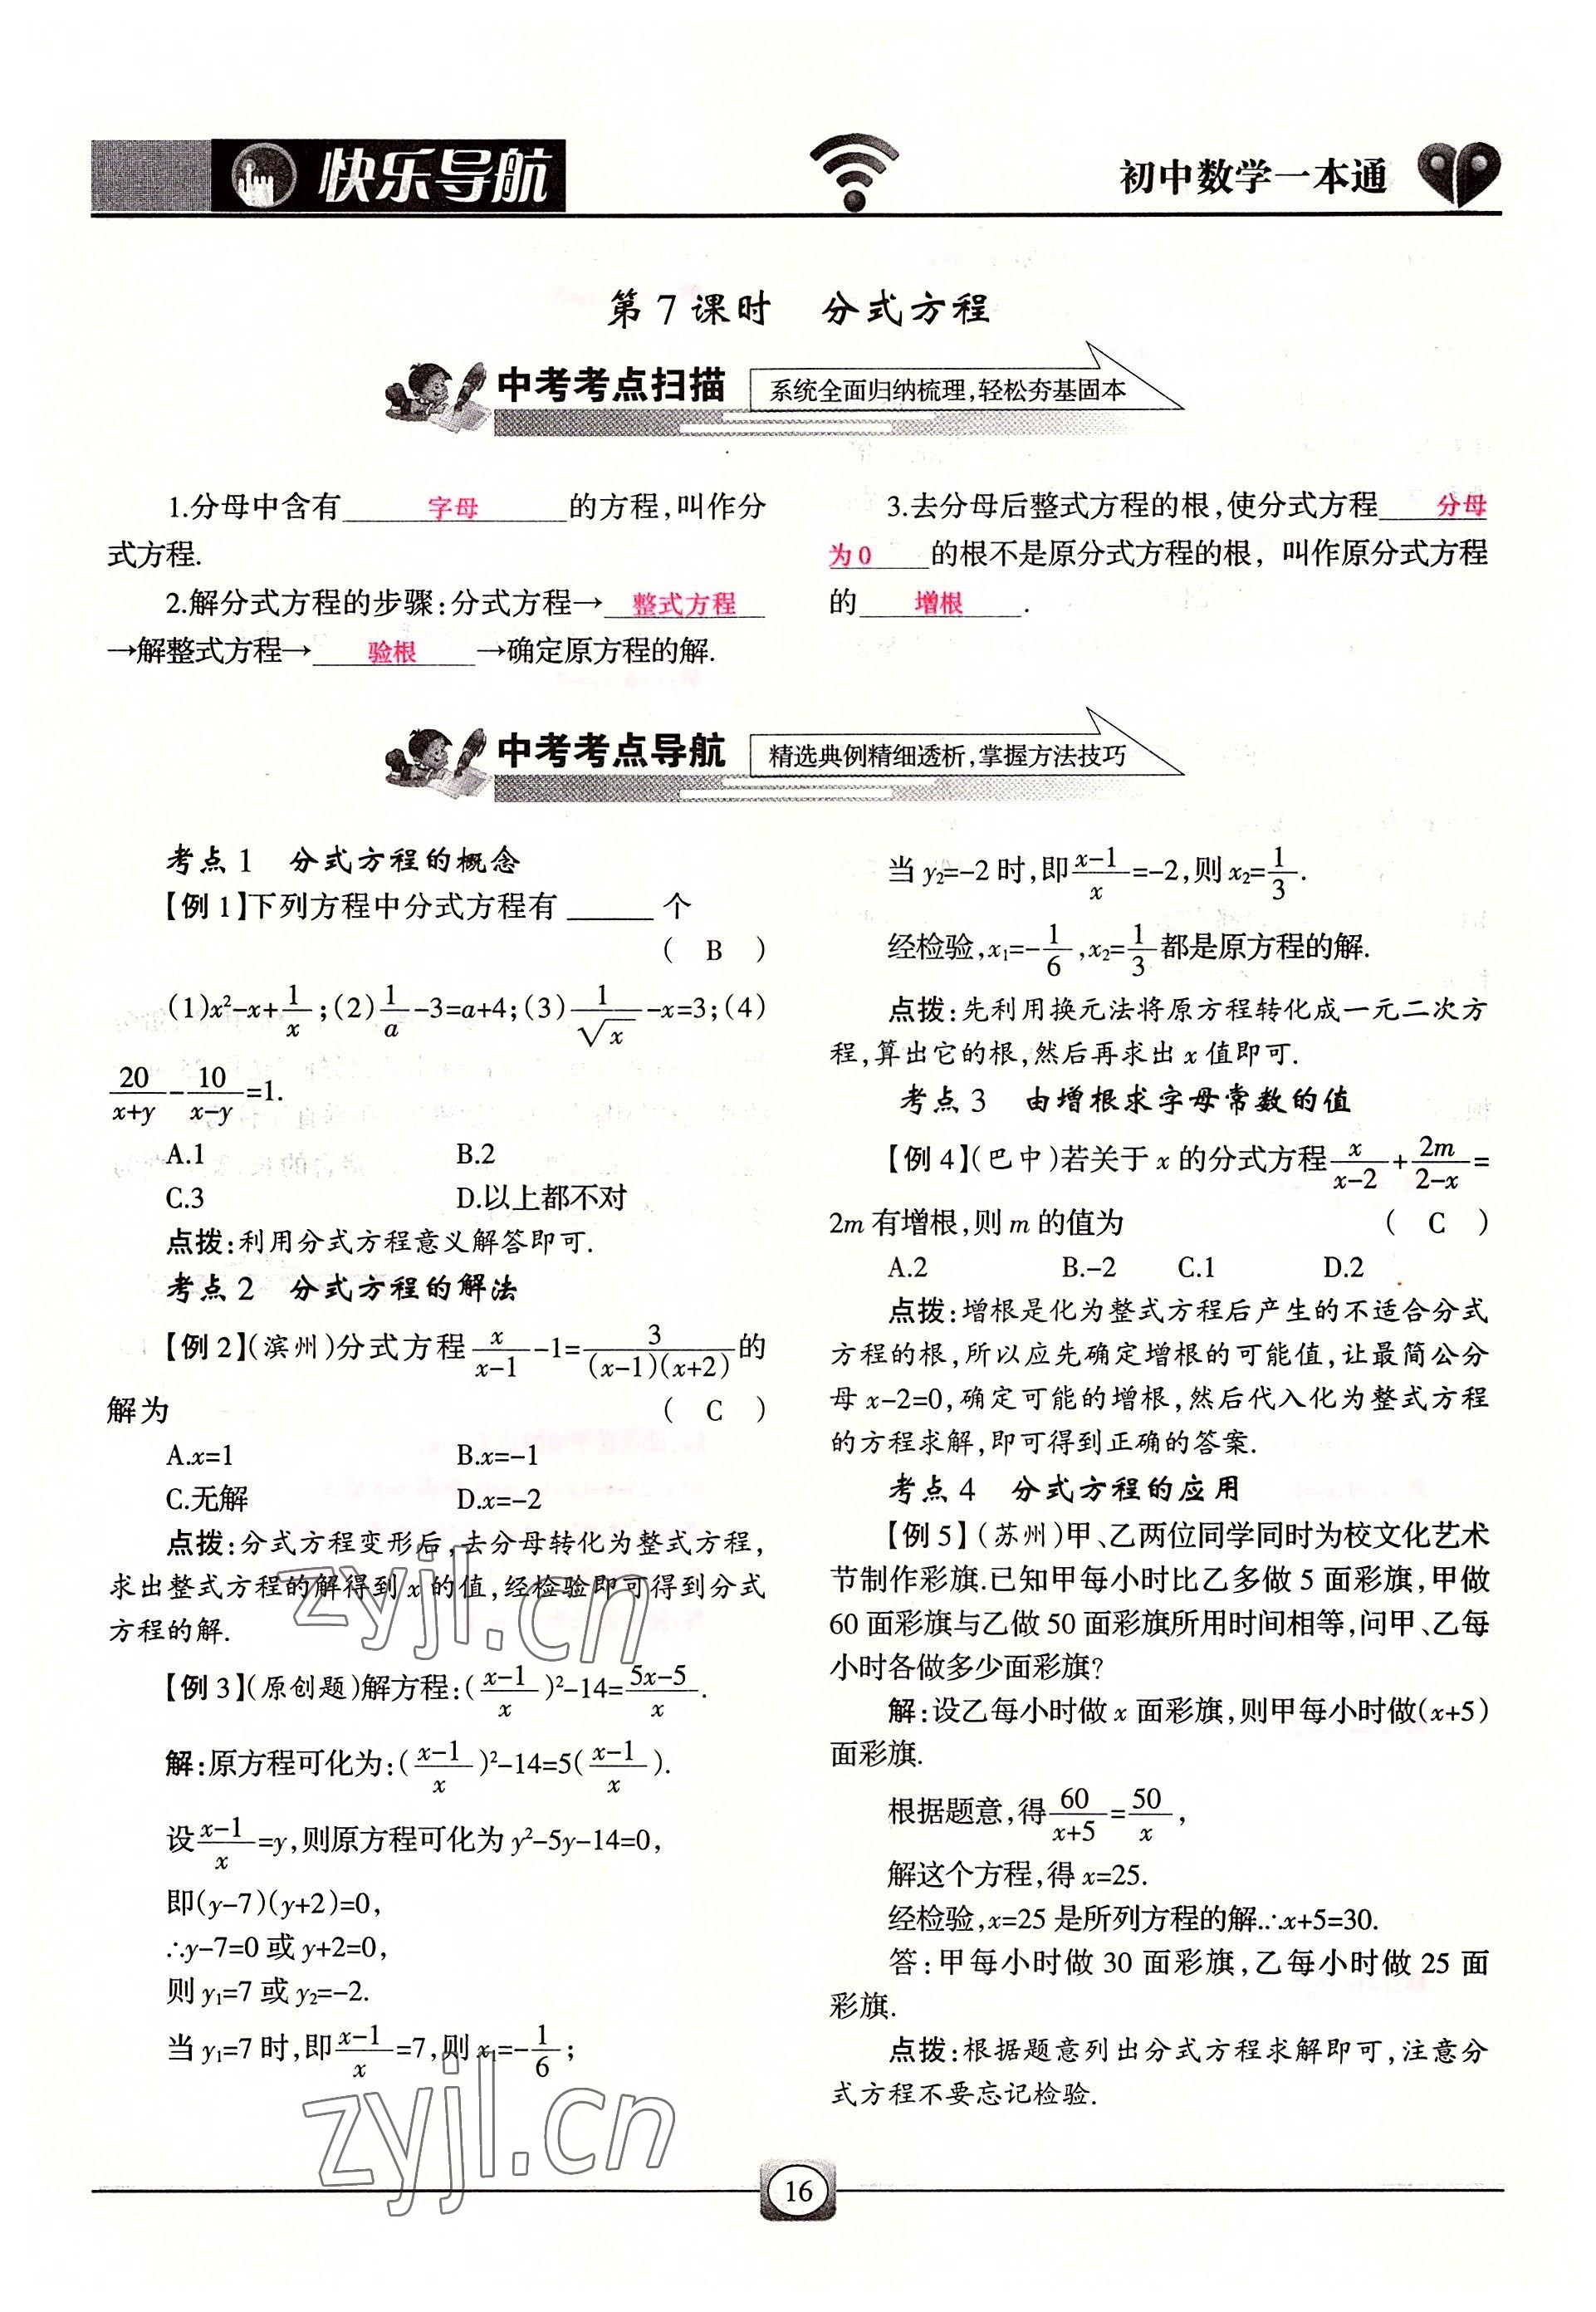 快乐导航
初中数学一本通
第7课时 分式方程
中考考点扫描 系统全面归纳梳理,轻松夯基固本
1.分母中含有 字母 的方程,叫作分
式方程.
2.解分式方程的步骤:分式方程→ 整式方程
→解整式方程→ 验根 →确定原方程的解.
3.去分母后整式方程的根,使分式方程 分母
为0 的根不是原分式方程的根, 叫作原分式方程
的 增根 .
中考考点导航 精选典例精细透析,掌握方法技巧
考点1 分式方程的概念
【例1】下列方程中分式方程有 ______ 个
( B )
(1)x²-x+1/x;(2)1/a-3=a+4;(3)1/√x-x=3;(4)
20/(x+y)-10/(x-y)=1.
A.1 B.2
C.3 D.以上都不对
点拨:利用分式方程意义解答即可.
考点2 分式方程的解法
【例2】(滨州)分式方程x/(x-1)-1=3/((x-1)(x+2))的
解为 ( C )
A.x=1 B.x=-1
C.无解 D.x=-2
点拨:分式方程变形后,去分母转化为整式方程,
求出整式方程的解得到x的值,经检验即可得到分式
方程的解.
【例3】(原创题)解方程:((x-1)/x)²-14=(5x-5)/x.
解:原方程可化为:((x-1)/x)²-14=5((x-1)/x).
设(x-1)/x=y,则原方程可化为y²-5y-14=0,
即(y-7)(y+2)=0,
∴y-7=0或y+2=0,
则y₁=7或y₂=-2.
当y₁=7时,即(x-1)/x=7,则x₁=-1/6;
当y₂=-2时,即(x-1)/x=-2,则x₂=1/3.
经检验,x₁=-1/6,x₂=1/3都是原方程的解.
点拨:先利用换元法将原方程转化成一元二次方
程,算出它的根,然后再求出x值即可.
考点3 由增根求字母常数的值
【例4】(巴中)若关于x的分式方程x/(x-2)+2m/(2-x)=
2m有增根,则m的值为 ( C )
A.2 B.-2 C.1 D.2
点拨:增根是化为整式方程后产生的不适合分式
方程的根,所以应先确定增根的可能值,让最简公分
母x-2=0,确定可能的增根,然后代入化为整式方程
的方程求解,即可得到正确的答案.
考点4 分式方程的应用
【例5】(苏州)甲、乙两位同学同时为校文化艺术
节制作彩旗.已知甲每小时比乙多做5面彩旗,甲做
60面彩旗与乙做50面彩旗所用时间相等,问甲、乙每
小时各做多少面彩旗?
解:设乙每小时做x面彩旗,则甲每小时做(x+5)
面彩旗.
根据题意,得60/(x+5)=50/x,
解这个方程,得x=25.
经检验,x=25是所列方程的解.∴x+5=30.
答:甲每小时做30面彩旗,乙每小时做25面
彩旗.
点拨:根据题意列出分式方程求解即可,注意分
式方程不要忘记检验.
zyjl.cn
zyjl.cn
16